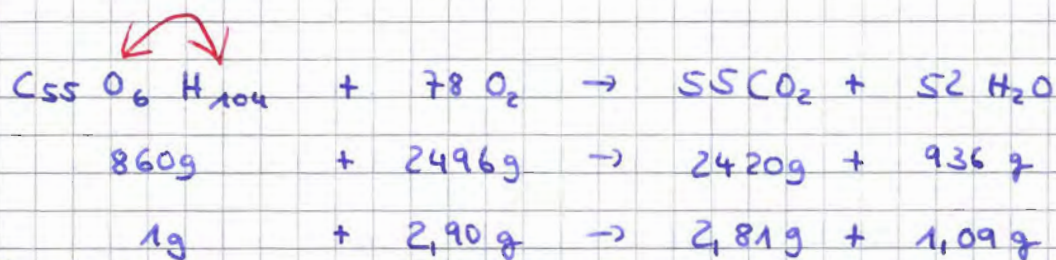 C₅₅ O₆ H₁₀₄ + 78 O₂ → 55 CO₂ + 52 H₂O
860g + 2496g → 2420g + 936 g
1g + 2,90 g → 2,81g + 1,09 g